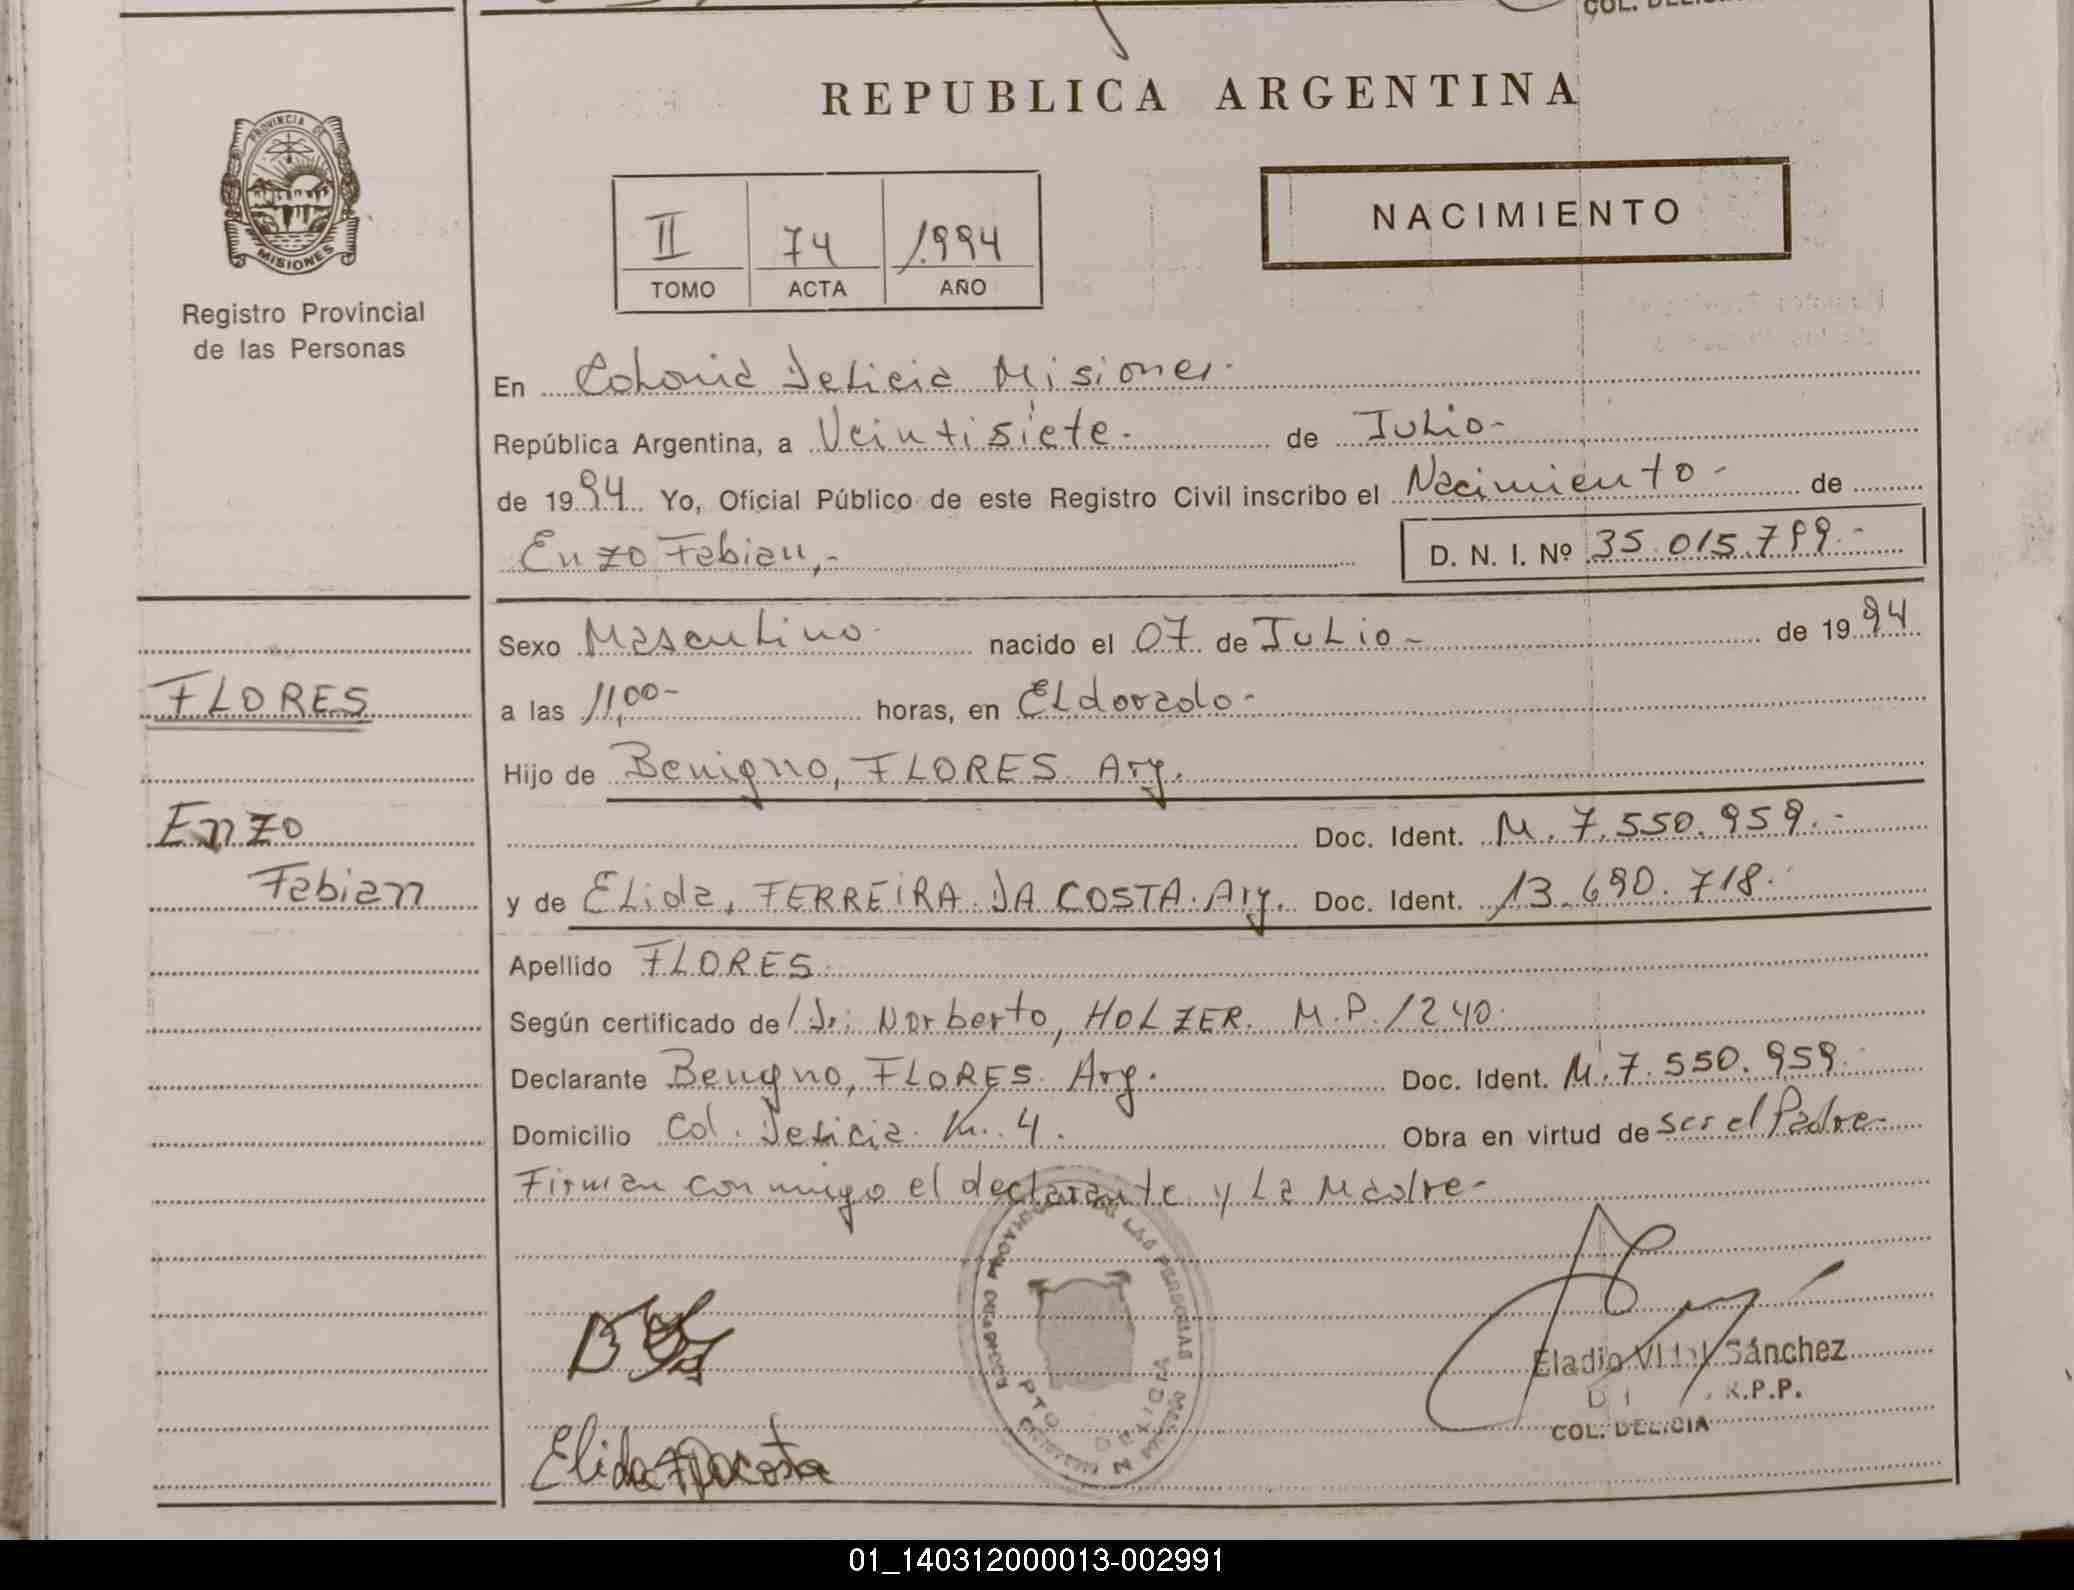 COL. DELICIA
REPUBLICA ARGENTINA
PROVINCIA DE
MISIONES
Registro Provincial
de las Personas
II 74 1.994
TOMO ACTA AÑO
NACIMIENTO
En Colonia Delicia Misiones.
República Argentina, a Veintisiete.- de Julio-
de 1994 Yo, Oficial Público de este Registro Civil inscribo el Nacimiento - de
Enzo Fabian,- D. N. I. Nº 35.015.799.-
Sexo Masculino- nacido el 07 de Julio- de 1994
FLORES
a las 11,00- horas, en Eldorado-
Hijo de Benigno, FLORES. Arg.
Enzo
Doc. Ident. M. 7.550.959.-
Fabian
y de Elida, FERREIRA DA COSTA. Arg. Doc. Ident. 13.690.718.
Apellido FLORES.
Según certificado de/ Dr: Norberto, HOLZER. M.P. 1240.
Declarante Benigno, FLORES. Arg. Doc. Ident. M.7.550.959.
Domicilio Col. Delicia. Km. 4. Obra en virtud de ser el Padre-
Firman conmigo el declarante y la Madre-
DE LAS PERSONAS
PTO
Eladio Sánchez
R.P.P.
COL. DELICIA
Elida
01_140312000013-002991